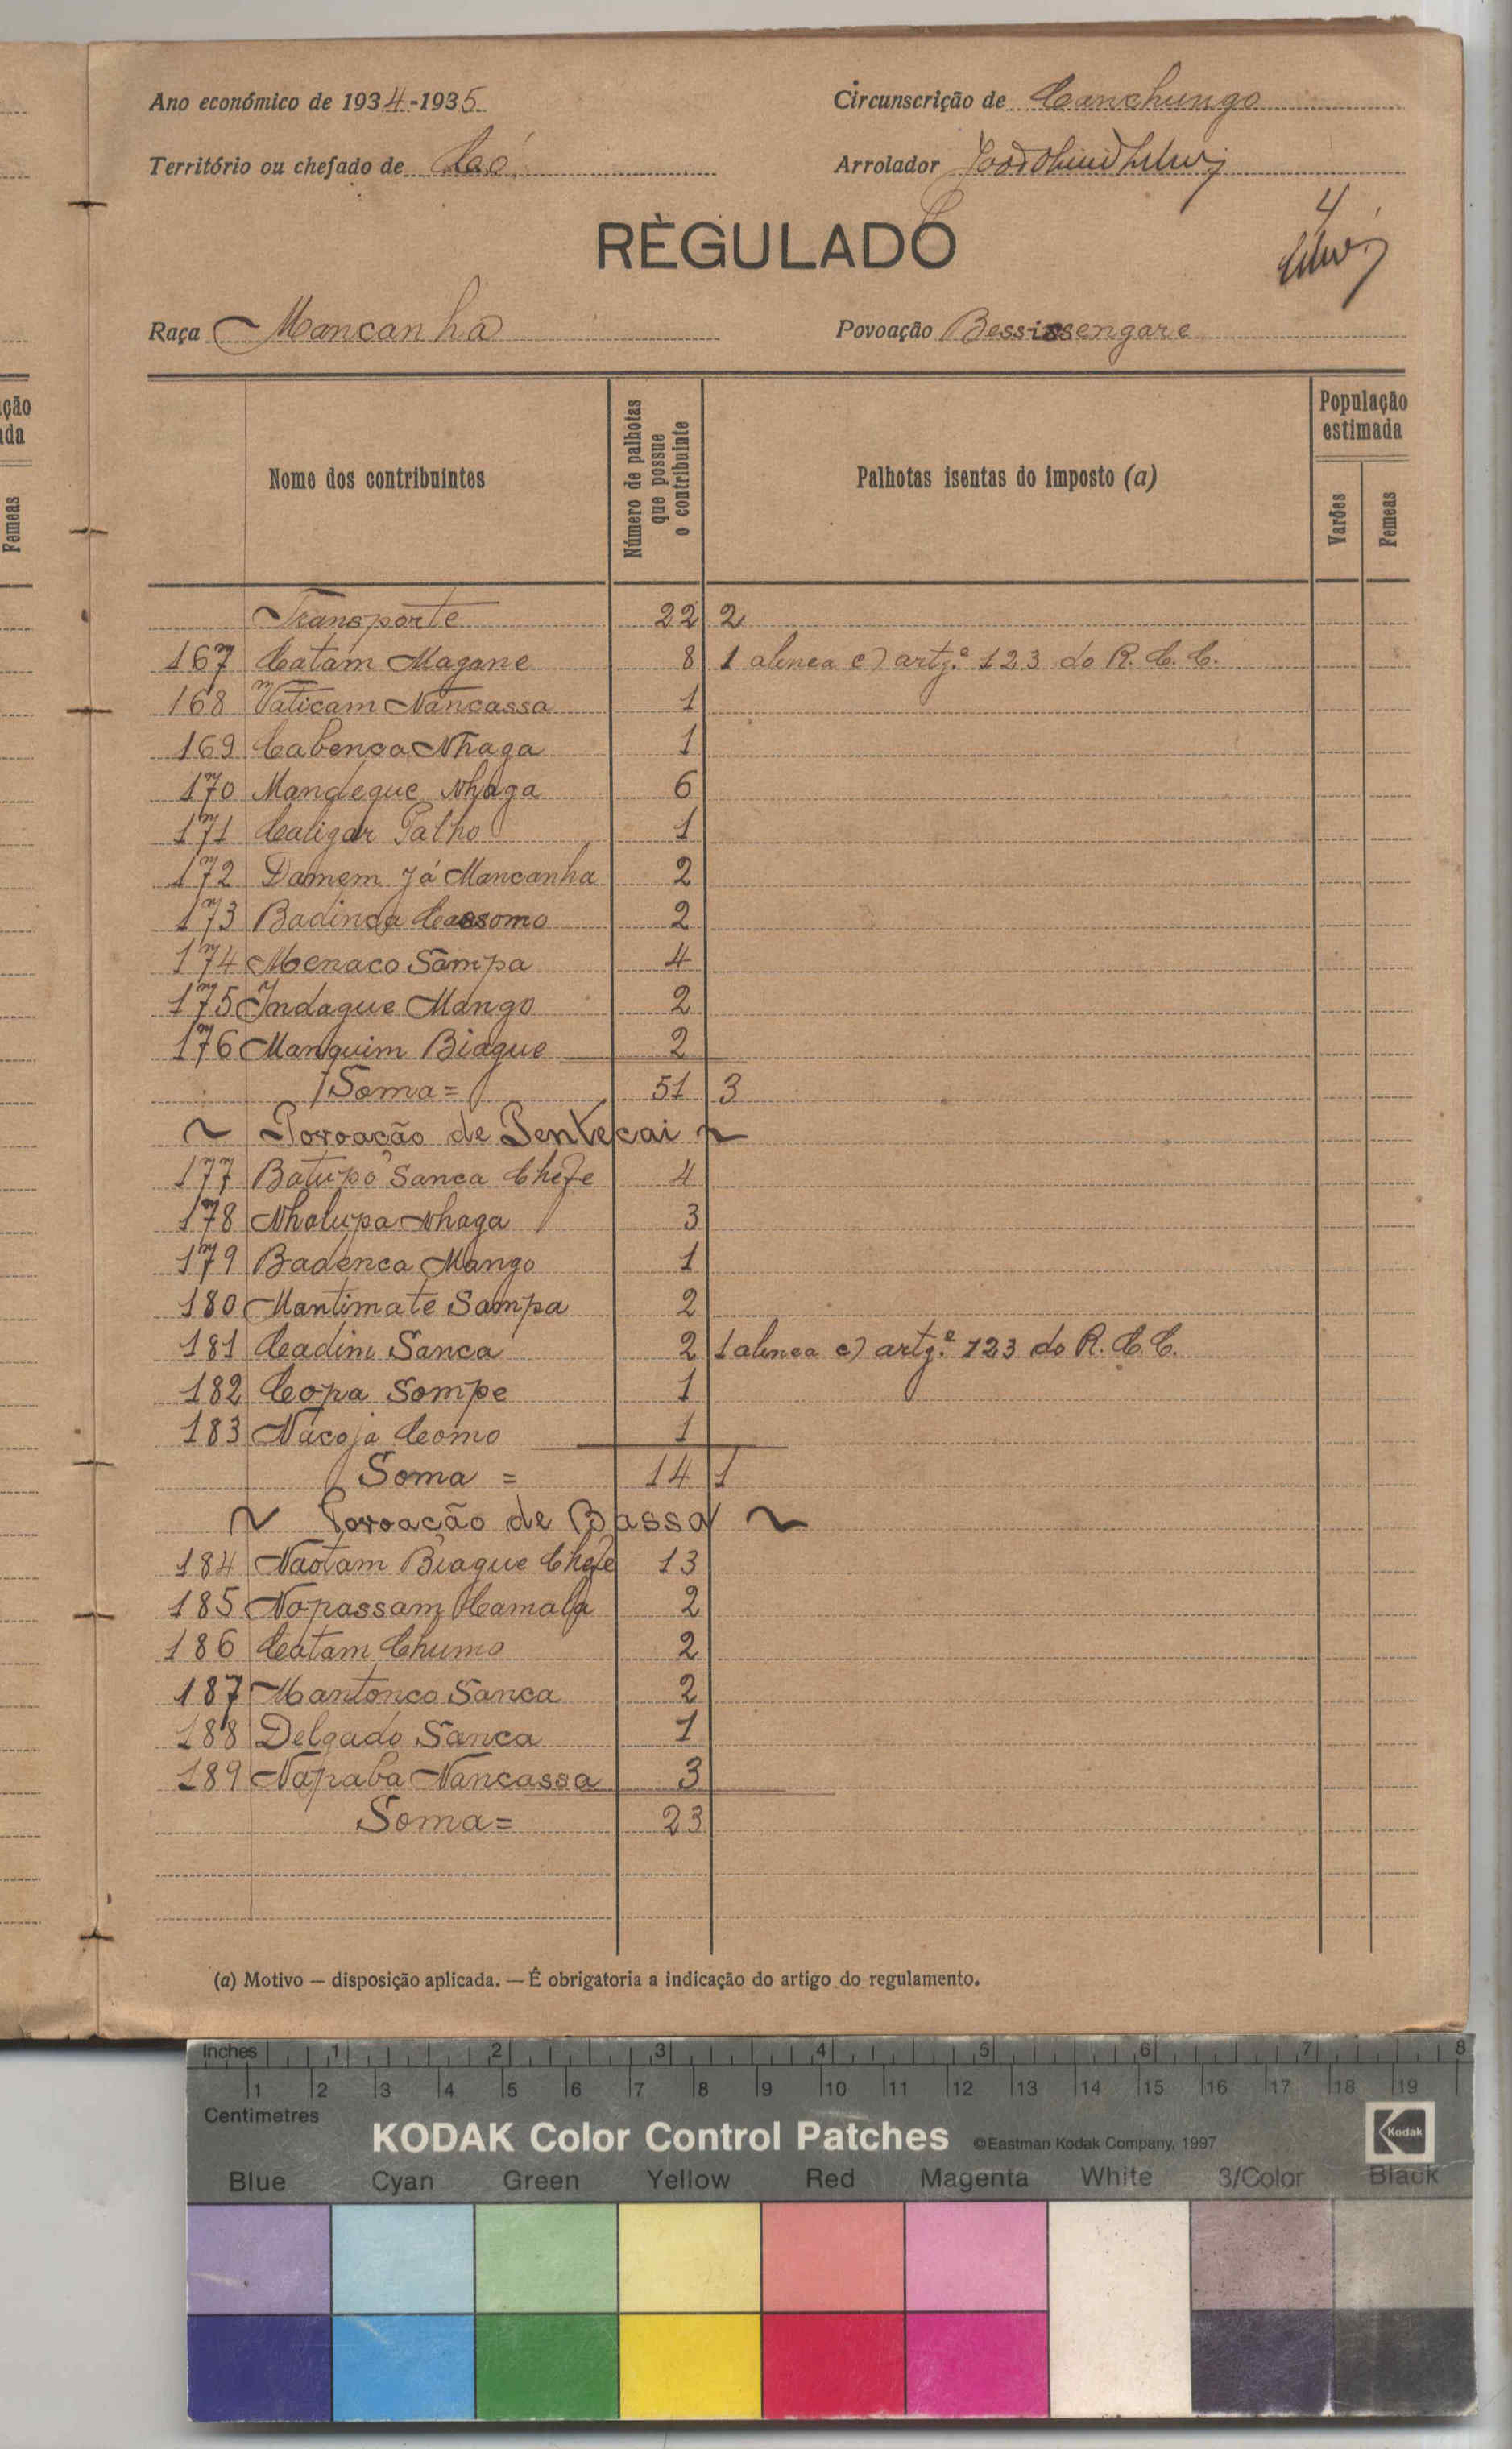 Ano económico de 1934-1935
Circunscrição de Canchungo
Território ou chefado de Có
Arrolador
4
RÈGULADO
Raça Mancanha
Povoação Bessissengare
ção
da
Femeas
Nome dos contribuintes
Número de palhotas que possue o contribuinte
Palhotas isentas do imposto (a)
População estimada
Varões
Femeas
Transporte 22 2
167 Catam Magane 8 1 alinea c) artg.º 123 do R. C. C.
168 Vaticam Nancassa 1
169 Cabenca Nhaga 1
170 Mandeque Nhaga 6
171 Caligar Palho 1
172 Damem Já Mancanha 2
173 Badinca Cassomo 2
174 Menaco Sampa 4
175 Indague Mango 2
176 Manquim Biague 2
Soma = 51 3
~ Povoação de Pentecai ~
177 Batupó Sanca Chefe 4
178 Nhalupa Nhaga 3
179 Badenca Mango 1
180 Mantimate Sampa 2
181 Cadim Sanca 2 1 alinea c) artg.º 123 do R. C. C.
182 Copa Sompe 1
183 Nácoja Como 1
Soma = 14 1
~ Povoação de Bassa ~
184 Naotam Biague Chefe 13
185 Nopassam Camala 2
186 Catam Chumo 2
187 Mantonco Sanca 2
188 Delgado Sanca 1
189 Napaba Nancassa 3
Soma = 23
(a) Motivo — disposição aplicada. — É obrigatoria a indicação do artigo do regulamento.
Inches 1 2 3 4 5 6 7 8
1 2 3 4 5 6 7 8 9 10 11 12 13 14 15 16 17 18 19
Centimetres
KODAK Color Control Patches ©Eastman Kodak Company, 1997 Kodak
Blue Cyan Green Yellow Red Magenta White 3/Color Black